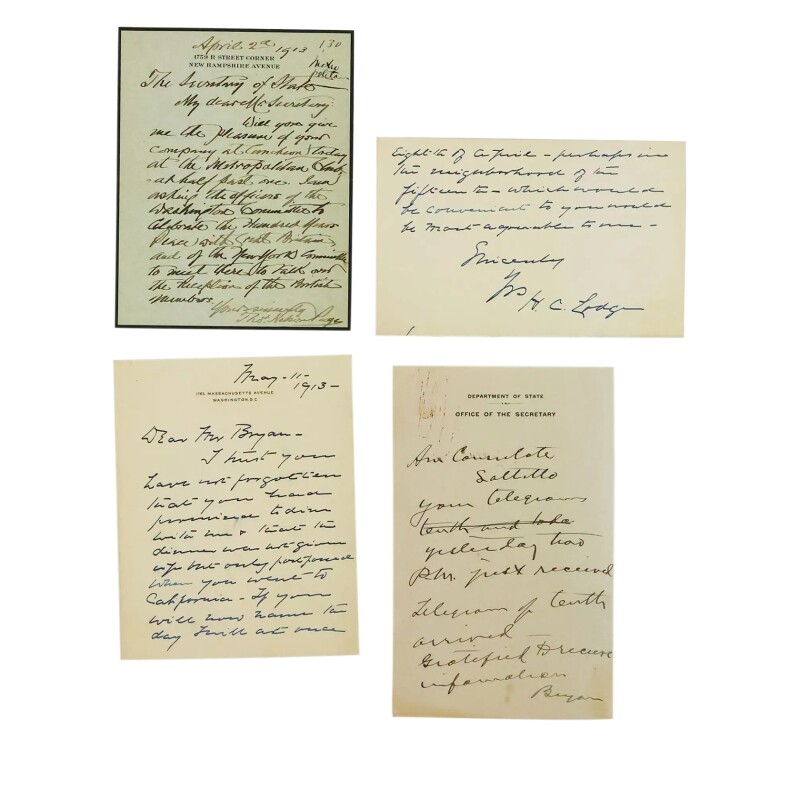 April 2d 1913
130
1759 R STREET CORNER
NEW HAMPSHIRE AVENUE
The Secretary of State
My dear Mr. Secretary:
Will you give
me the pleasure of your
company at luncheon today
at the Metropolitan Club
at half past one. I am
asking the officers of the
Washington Committee to
Celebrate the Hundred Years
Peace with Great Britain
and of the New York Committee
to meet there to talk over
the reception of the British
members.
Yours sincerely
Thos. Nelson Page
Eighth of April - perhaps in
the neighborhood of the
fifteenth - which would
be convenient to you would
be most agreeable to me -
Sincerely
Yrs
H. C. Lodge
May - 11 -
1913 -
1765 MASSACHUSETTS AVENUE
WASHINGTON, D.C.
Dear Mr Bryan -
I trust you
have not forgotten
that you had
promised to dine
with me & that the
dinner was not given
up but only postponed
when you went to
California - If you
will now name the
day I will at once
DEPARTMENT OF STATE
OFFICE OF THE SECRETARY
Am Consulate
Saltillo
your telegrams
tenth and
yesterday two
P.M. just received
Telegram of tenth
arrived -
Gratified to receive
information
Bryan